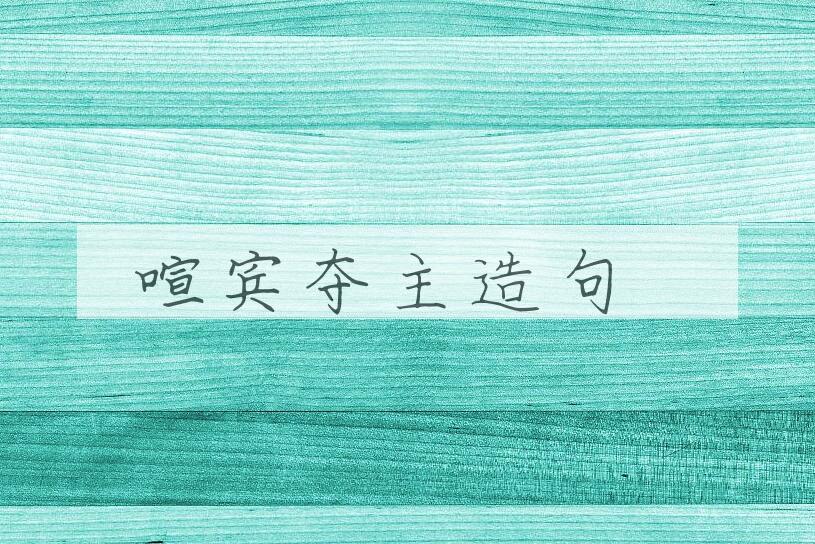 喧宾夺主造句